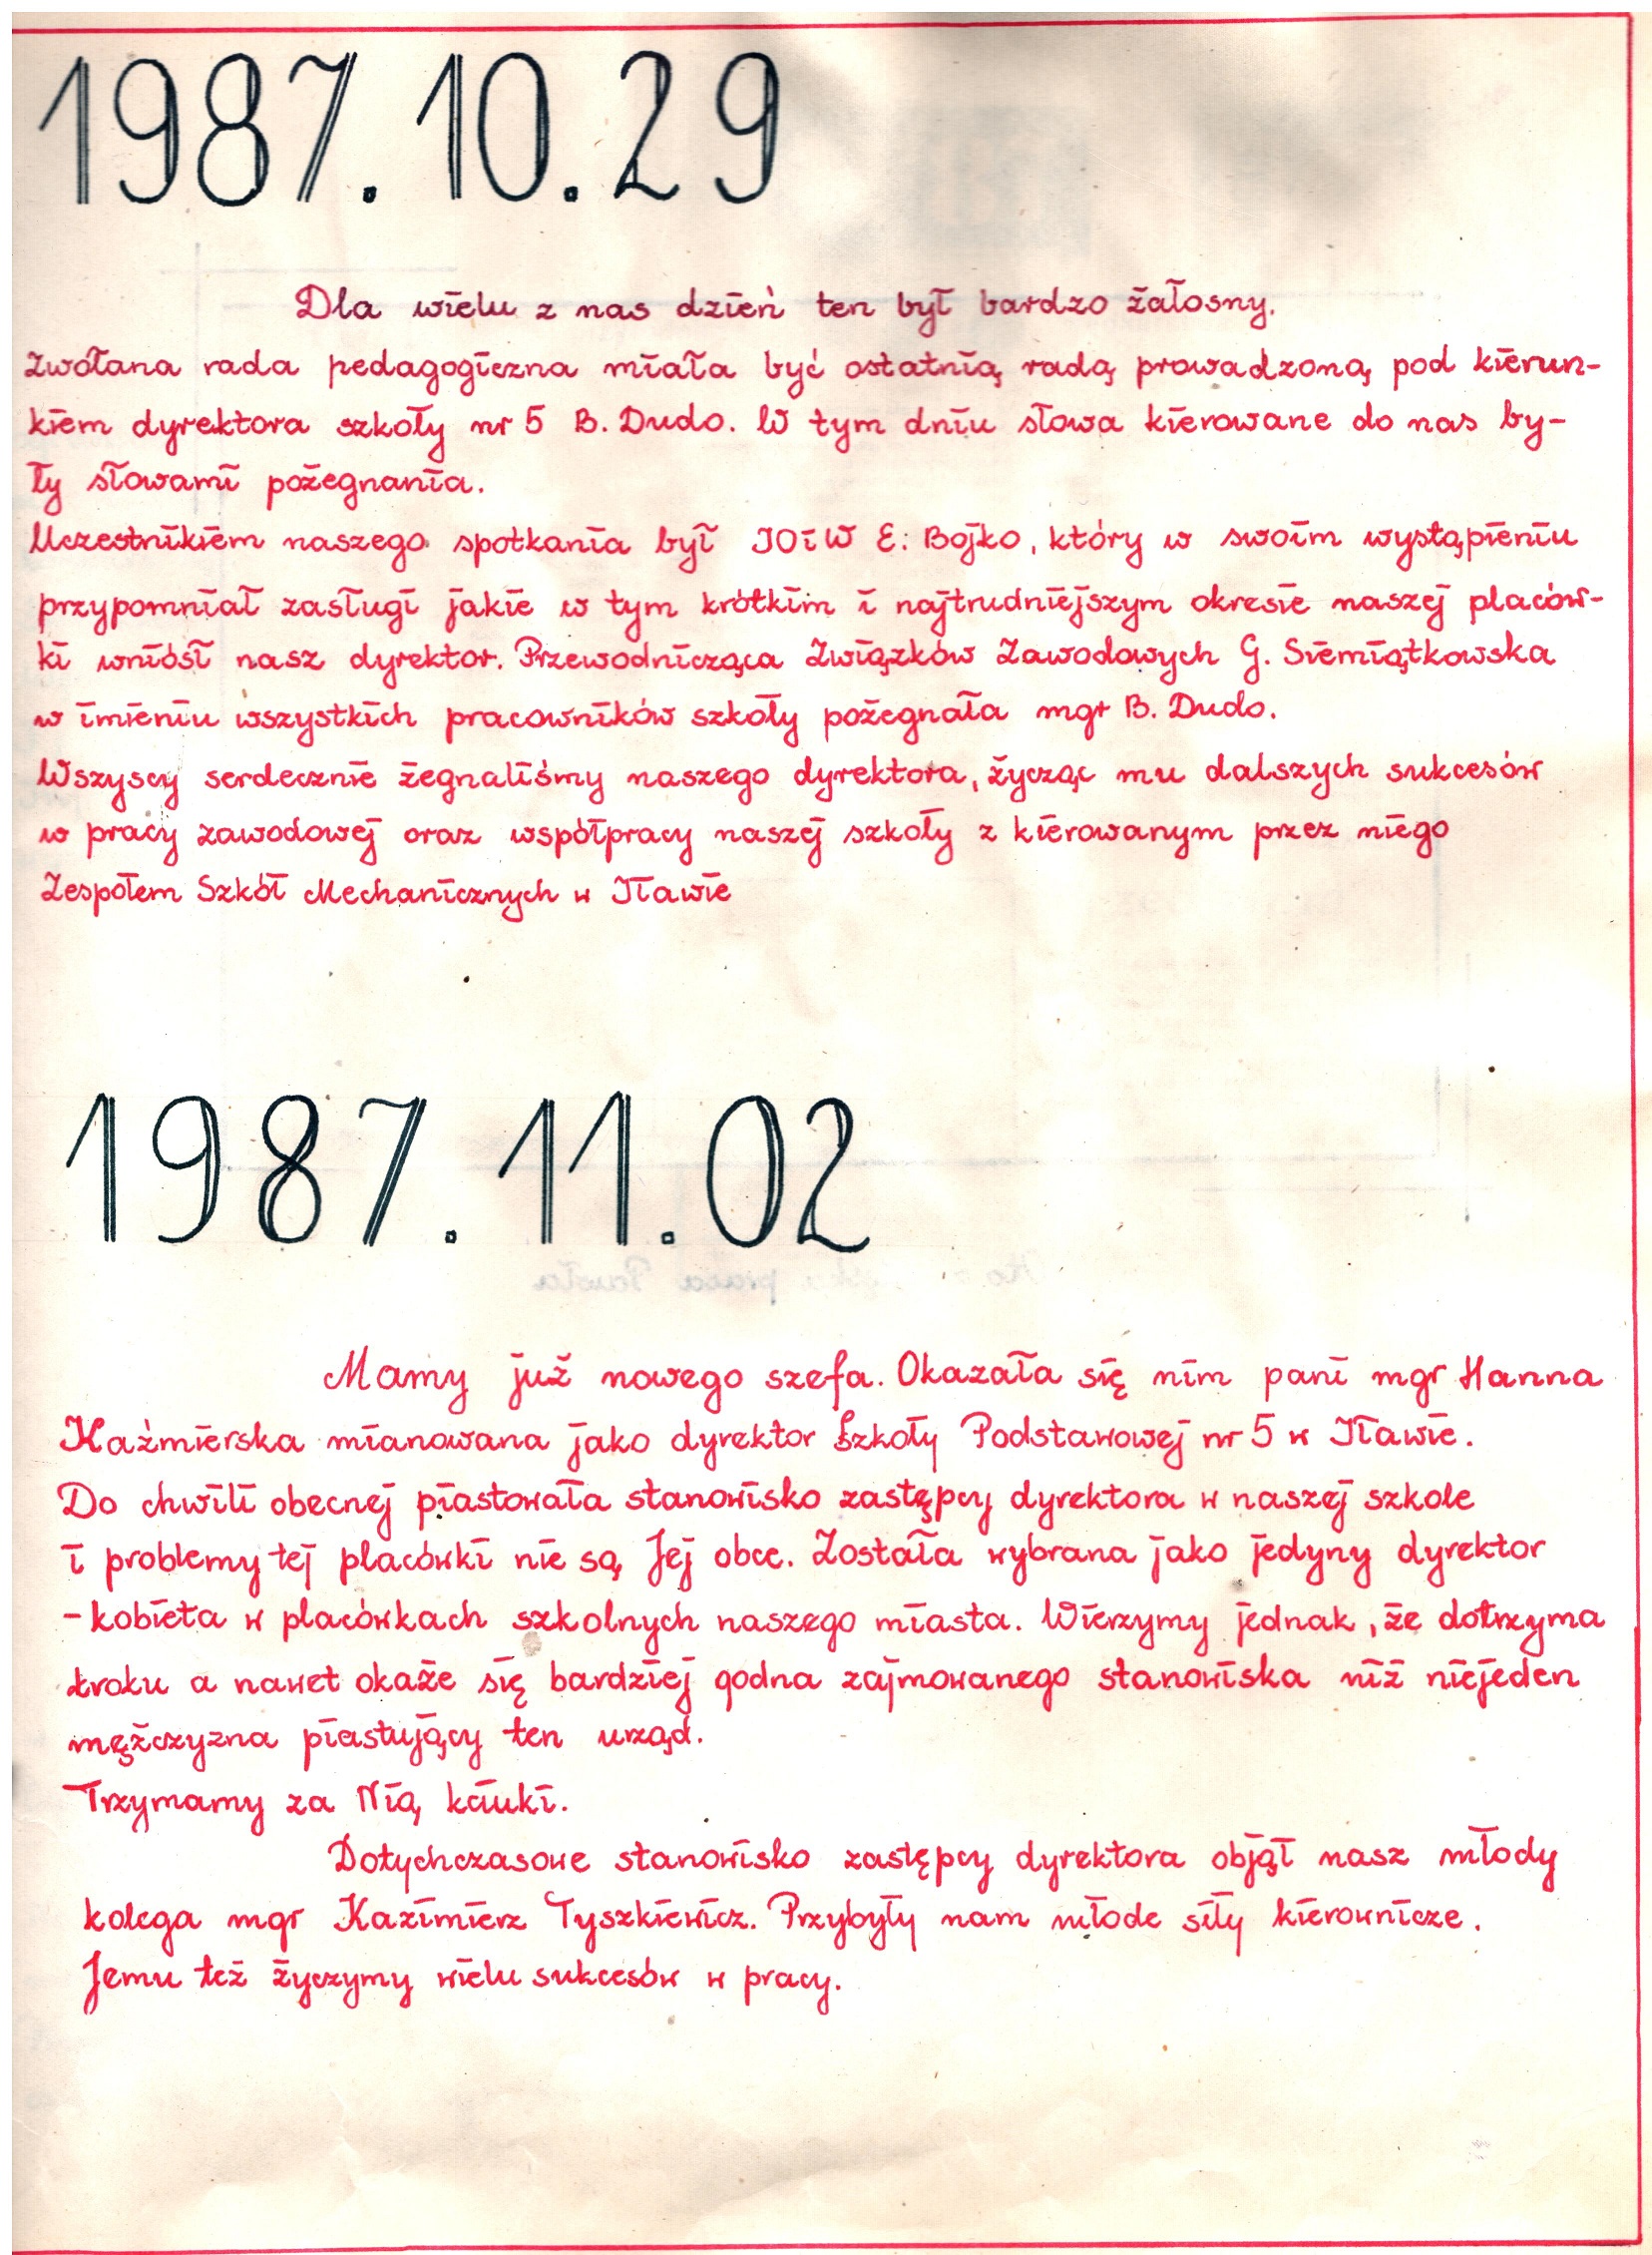 1987.10.29
Dla wielu z nas dzień ten był bardzo żałosny.
Zwołana rada pedagogiczna miała być ostatnią radą prowadzoną pod kierun-
kiem dyrektora szkoły nr 5 B. Dudo. W tym dniu słowa kierowane do nas by-
ły słowami pożegnania.
Uczestnikiem naszego spotkania był IOiW E. Bojko, który w swoim wystąpieniu
przypomniał zasługi jakie w tym krótkim i najtrudniejszym okresie naszej placów-
ki wniósł nasz dyrektor. Przewodnicząca Związków Zawodowych G. Siemiątkowska
w imieniu wszystkich pracowników szkoły pożegnała mgr B. Dudo.
Wszyscy serdecznie żegnaliśmy naszego dyrektora, życząc mu dalszych sukcesów
w pracy zawodowej oraz współpracy naszej szkoły z kierowanym przez niego
Zespołem Szkół Mechanicznych w Iławie
1987.11.02
Mamy już nowego szefa. Okazała się nim pani mgr Hanna
Kaźmierska mianowana jako dyrektor Szkoły Podstawowej nr 5 w Iławie.
Do chwili obecnej piastowała stanowisko zastępcy dyrektora w naszej szkole
i problemy tej placówki nie są Jej obce. Została wybrana jako jedyny dyrektor
-kobieta w placówkach szkolnych naszego miasta. Wierzymy jednak, że dotrzyma
kroku a nawet okaże się bardziej godna zajmowanego stanowiska niż niejeden
mężczyzna piastujący ten urząd.
Trzymamy za Nią kciuki.
Dotychczasowe stanowisko zastępcy dyrektora objął nasz młody
kolega mgr Kazimierz Tyszkiewicz. Przybyły nam młode siły kierownicze.
Jemu też życzymy wielu sukcesów w pracy.